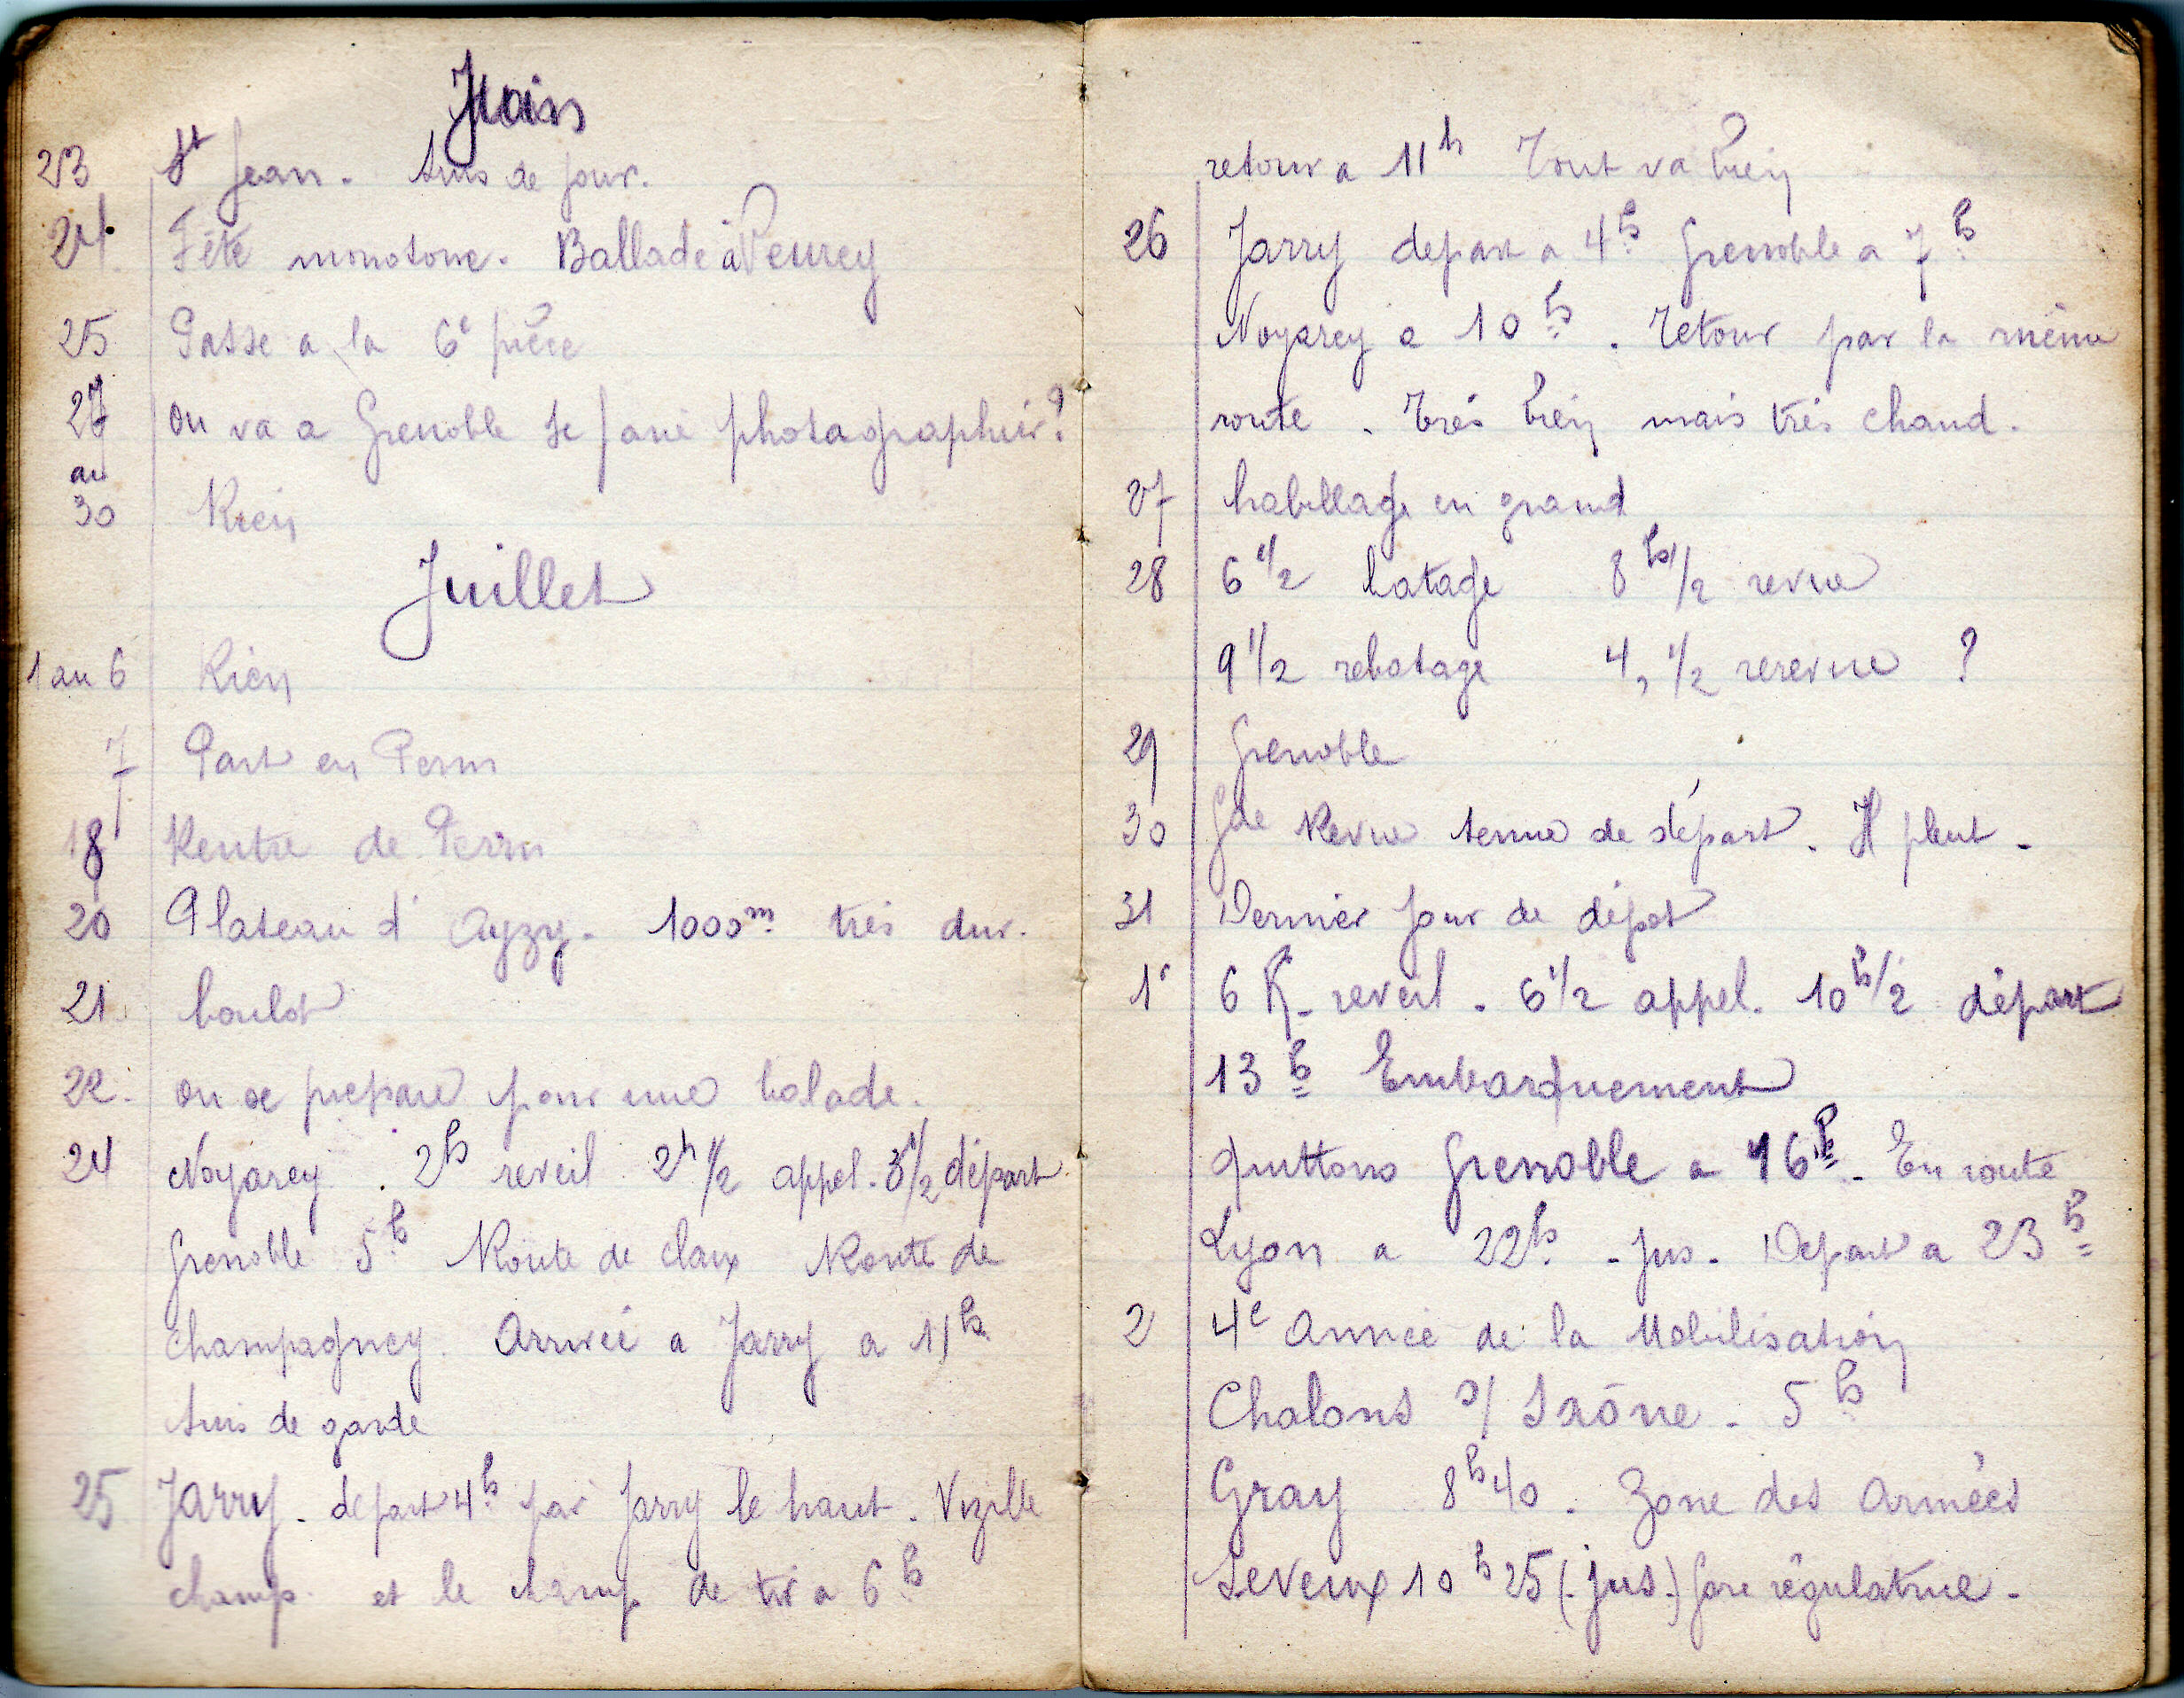 Juin
23 St Jean. Suis de jour.
24. Fête monotone. Ballade à Veurey
25 Passe a la 6e pièce
27 on va a Grenoble se faire photographier ?
au
30 Rien
Juillet
1 au 6 Rien
7 Part en Perm
18 Rentre de Perm
20 Plateau d' Ayzy. 1000m très dur.
21. boulot
22. on se prepare pour une balade.
24 Noyarey . 2h reveil 2h 1/2 appel. 3 1/2 départ
Grenoble 5h Route de claix Route de
champagney. Arrivée a Jarry a 11h
Suis de garde
25 Jarry. depart 4h par Jarry le haut. Vizille
champ. et le champ de tir a 6h
retour a 11h Tout va bien
26 Jarry depart a 4h Grenoble a 7h
Noyarey a 10h. retour par la même
route. très bien mais très chaud.
27 habillage en grand
28 6 1/2 batage 8h 1/2 revue
9 1/2 rebatage 4, 1/2 rerevue ?
29 Grenoble
30 Gde Revue tenue de départ. Il pleut.
31 Dernier jour de dépot
1r 6h. reveil. 6 1/2 appel. 10h 1/2 départ
13h Embarquement
quittons Grenoble a 16h. En route
Lyon a 22h. - jus. Depart a 23h
2 4e Année de la Mobilisation
Chalons s/ Saône. 5h
Gray 8h40. Zone des Armées
Seveux 10h25 (.jus.) gare régulatrice.